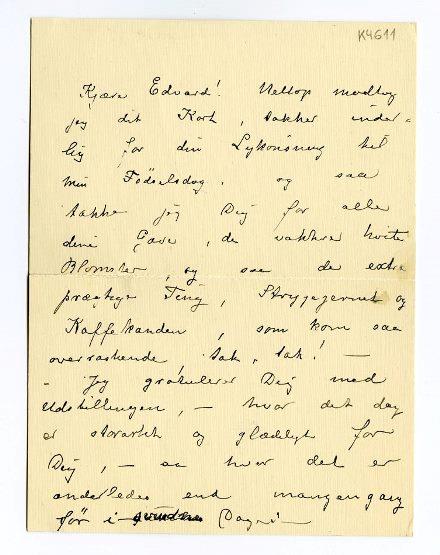 K4611
Kjære Edvard! Nettop modtog
jeg dit Kort, takker inder-
lig for din Lykønsning til
min Fødselsdag. og saa
takke jeg Dig for alle
dine Gave, de vakkre hvite
Blomster, og saa de extra
prægtige Ting, Strygejernet og
Kaffekanden, som kom saa
overraskende, tak, tak! —
- Jeg gratulerer Dig med
Udstillingen, — hvor det dog
er storartet og glædeligt for
Dig, — aa hvor det er
anderledes end mangengang
før i Dage! —